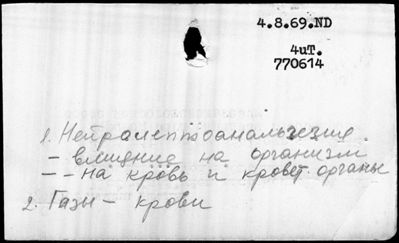 4.8.69.ND
4чТ.
770614
1. Нейролептоанальгезия.
- влияние на организм
- - на кровь и кровет. органы
2. Газы - крови